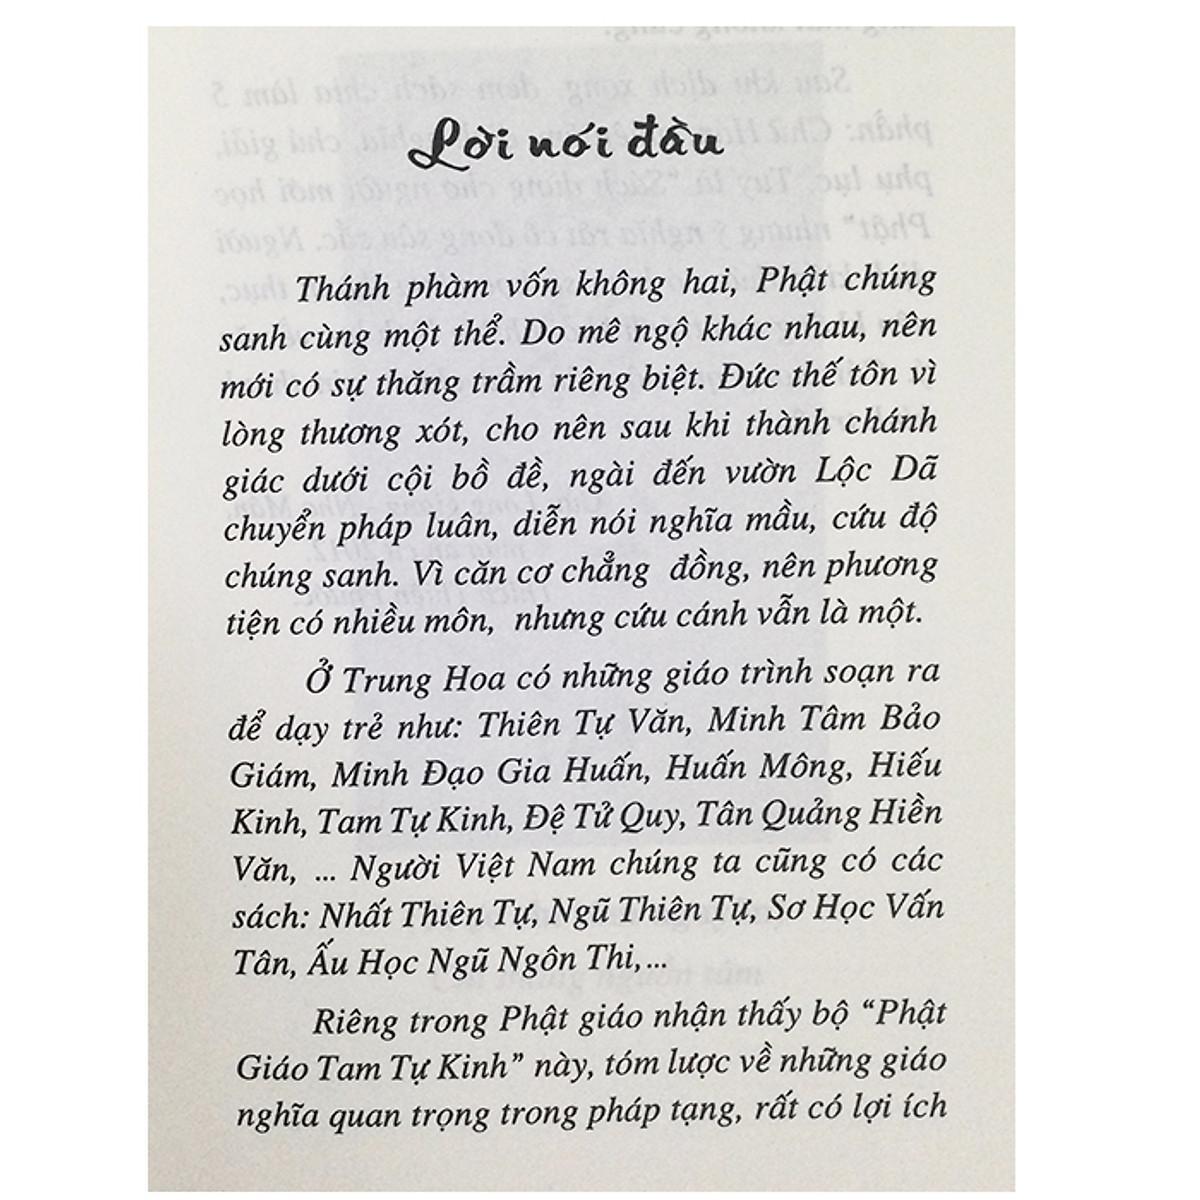 Lời nói đầu
Thánh phàm vốn không hai, Phật chúng
sanh cùng một thể. Do mê ngộ khác nhau, nên
mới có sự thăng trầm riêng biệt. Đức thế tôn vì
lòng thương xót, cho nên sau khi thành chánh
giác dưới cội bồ đề, ngài đến vườn Lộc Dã
chuyển pháp luân, diễn nói nghĩa mầu, cứu độ
chúng sanh. Vì căn cơ chẳng đồng, nên phương
tiện có nhiều môn, nhưng cứu cánh vẫn là một.
Ở Trung Hoa có những giáo trình soạn ra
để dạy trẻ như: Thiên Tự Văn, Minh Tâm Bảo
Giám, Minh Đạo Gia Huấn, Huấn Mông, Hiếu
Kinh, Tam Tự Kinh, Đệ Tử Quy, Tân Quảng Hiền
Văn, ... Người Việt Nam chúng ta cũng có các
sách: Nhất Thiên Tự, Ngũ Thiên Tự, Sơ Học Vấn
Tân, Ấu Học Ngũ Ngôn Thi,...
Riêng trong Phật giáo nhận thấy bộ “Phật
Giáo Tam Tự Kinh” này, tóm lược về những giáo
nghĩa quan trọng trong pháp tạng, rất có lợi ích